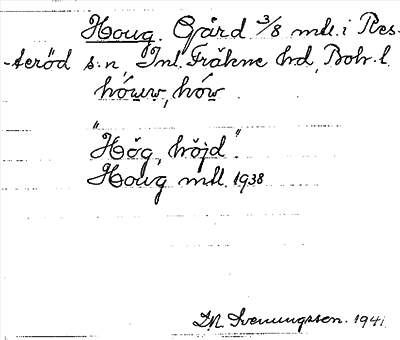 Houg. Gård 3/8 mtl. i Res-
-teröd s:n, Inl. Fräkne hd, Boh. l.
hówv, hów
"Hög, höjd".
Houg mtl. 1938
M. Svenungsson. 1941